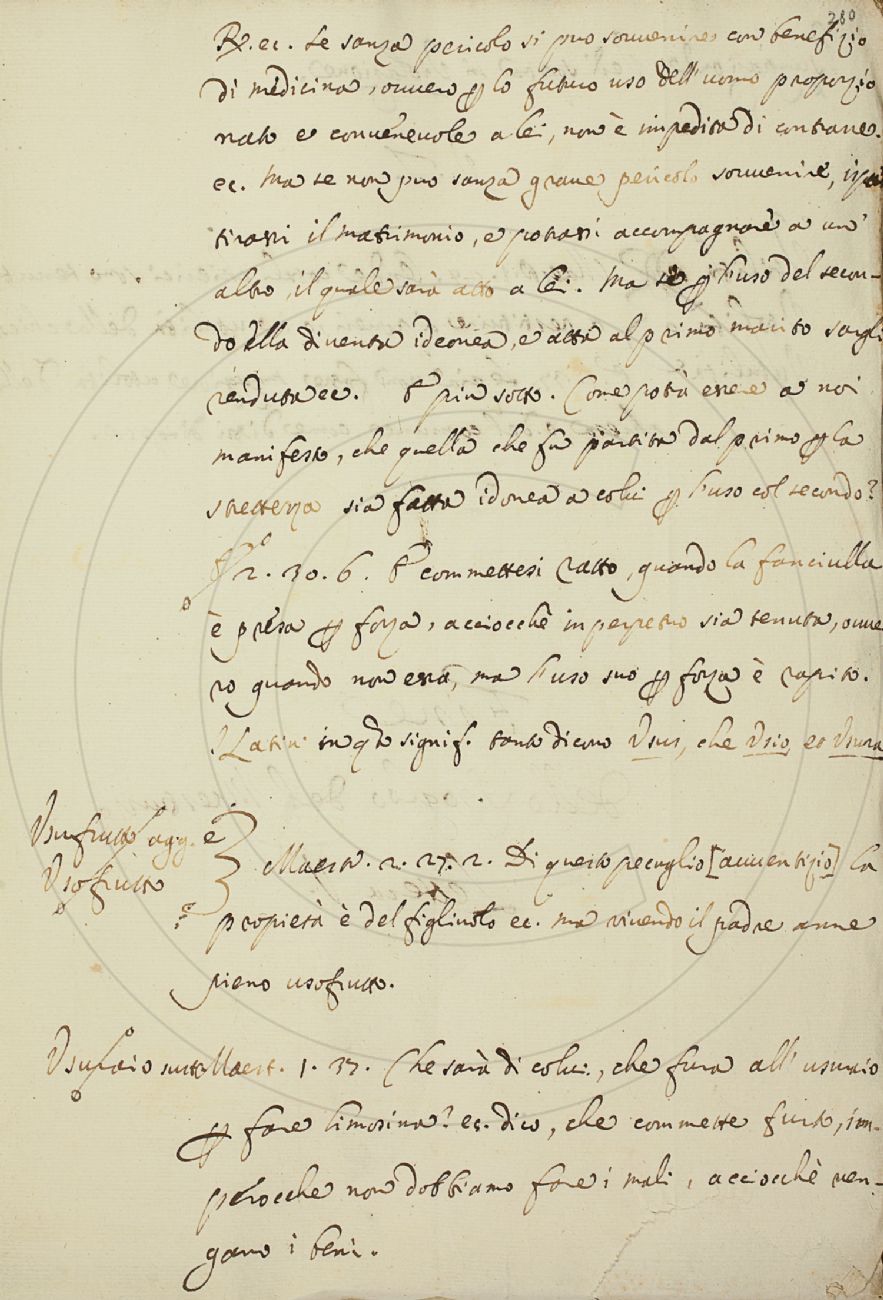 280
R. ec. Se sanza pericolo si può souvenire con benefizio
di medicina, ouvero p lo futuro uso dell'uomo proporzio
nato e convenevole a lei, non è impedita di contraer.
ec. Ma se non può sanza grave pericolo souvenire,
tirassi il matrimonio, e potrassi accompagnare a un'
altro, il quale sarà atto a lei. Ma se p l'uso del secon-
do ella diventa ideonea, e atta al primo marito saragli
renduta ec. E più sotto. Come potrà essere a noi
manifesto, che quella che fu partita dal primo p la
strettezza sia fatta idonea a colui p l'uso col secondo?
2. 30. 6. E commettesi ratto, quando la fanciulla
è presa p forza, acciocchè in perpetuo sia tenuta, ouve
ro quando non essa, ma l'uso suo p forza è rapito.
I Latini in qto signif. tanto dicono Usus, che Usio, et Usura
Usufrutto agg. e
Usofrutto
Maestr. 2. 27. 2. Di questo pecuglio [avventizio] la
propietà è del figliuolo ec. ma vivendo il padre anne
pieno usofrutto.
Usuraio sust. Maestr. 1. 37. Che sarà di colui, che fura all'usuraio
p fare limosina? ec. dico, che commette furto, im-
perocche non dobbiamo fare i mali, acciocchè ven-
gano i beni.